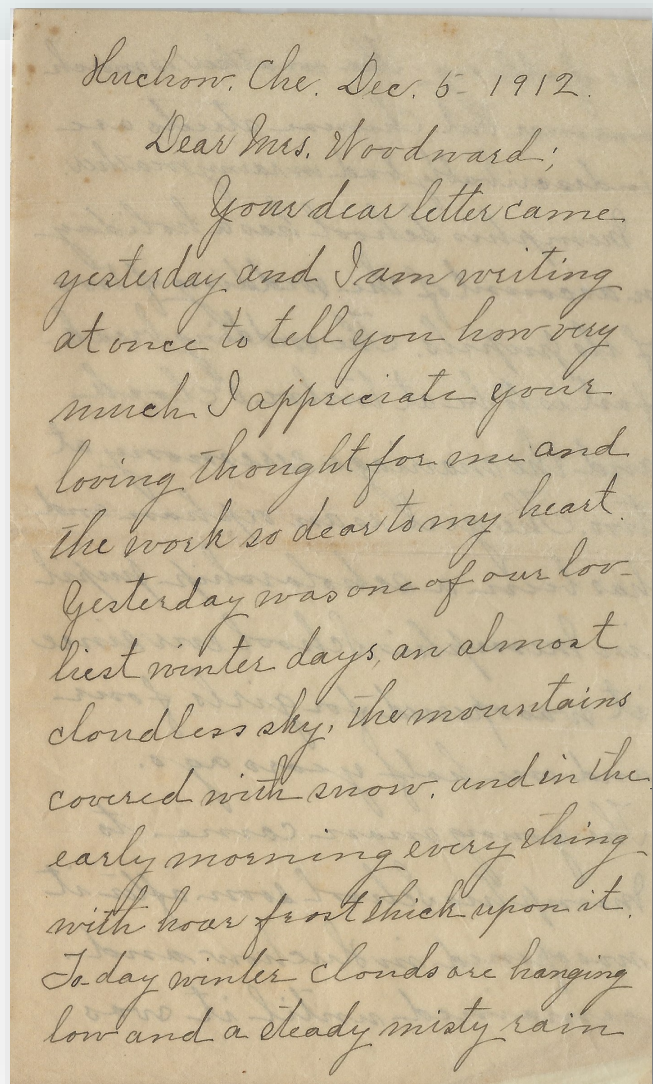 Huchow. Che. Dec. 5- 1912.
Dear Mrs. Woodward;
Your dear letter came
yesterday and I am writing
at once to tell you how very
much I appreciate your
loving thought for me and
the work so dear to my heart.
Yesterday was one of our lov-
liest winter days, an almost
cloudless sky, the mountains
covered with snow, and in the
early morning every thing
with hoar frost thick upon it.
To-day winter clouds are hanging
low and a steady misty rain